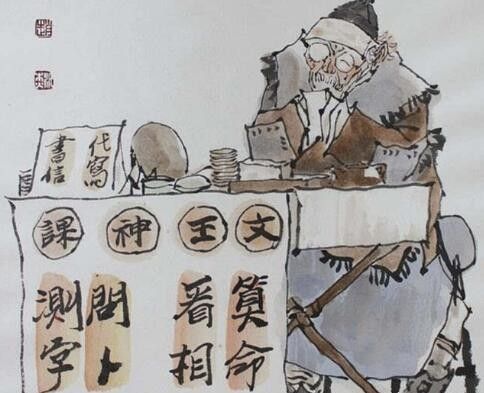 代寫
書信
文王神課
算命
看相
問卜
測字